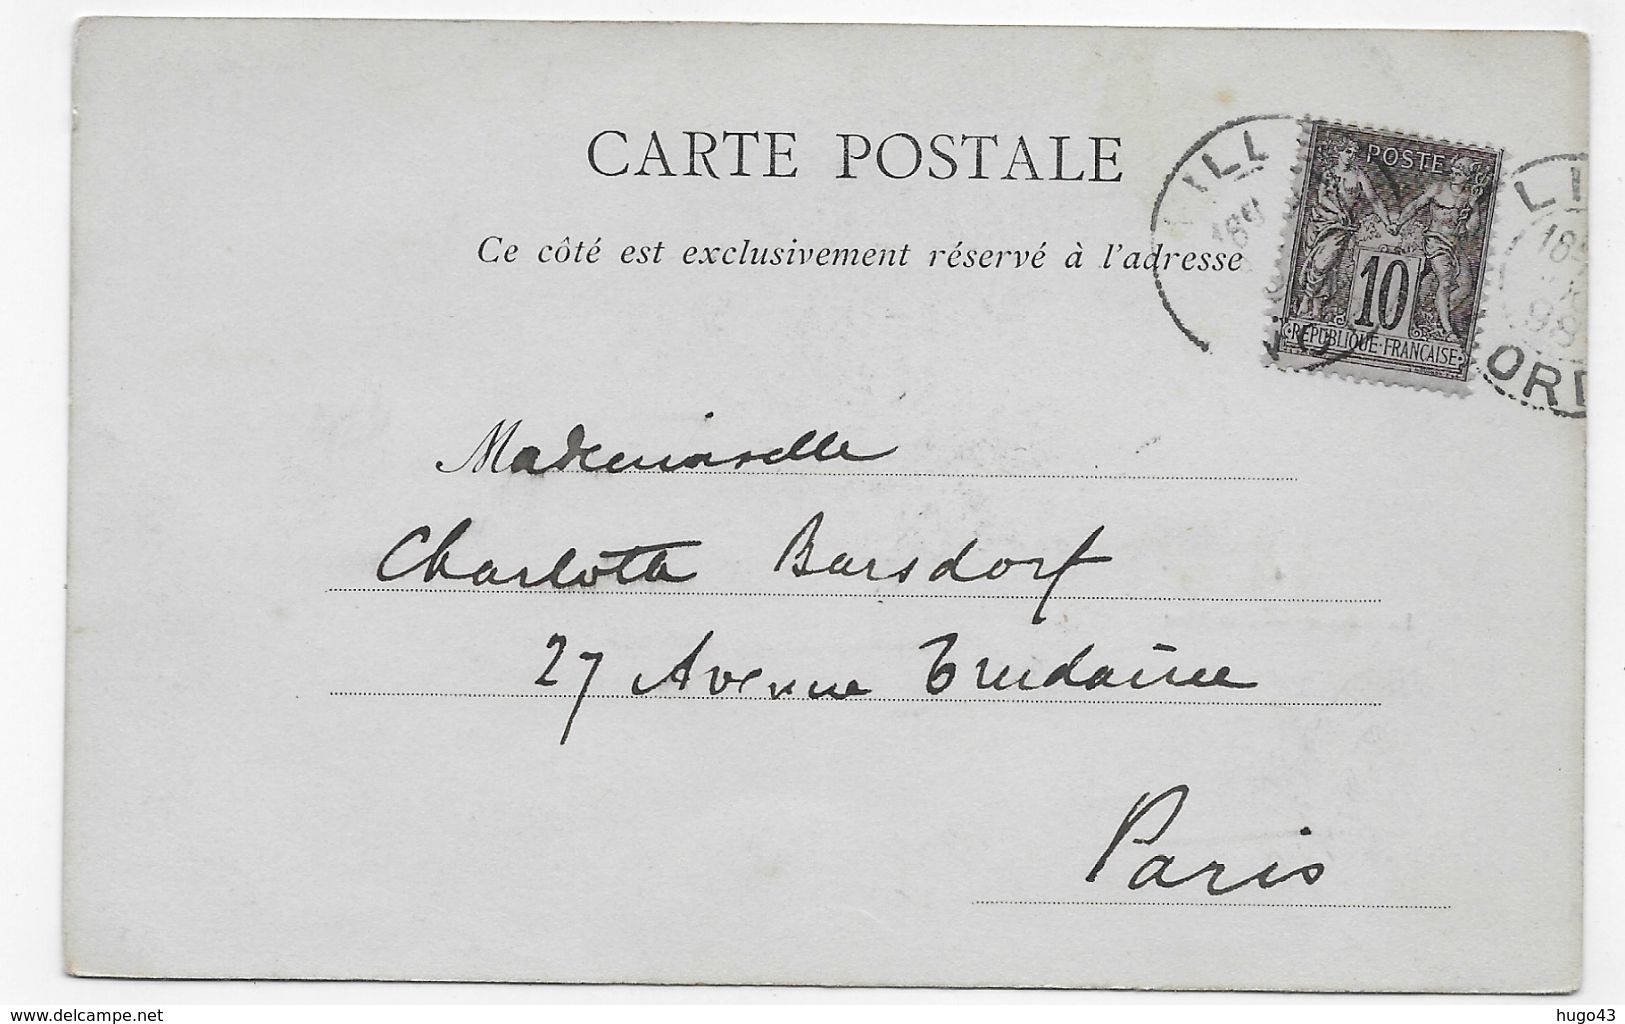 CARTE POSTALE
Ce côté est exclusivement réservé à l'adresse
POSTE
10
REPUBLIQUE FRANÇAISE
LILL
LI
98
ORD
Mademoiselle
Charlotte Barsdorf
27 Avenue Trudaine
Paris
www.delcampe.net
hugo43